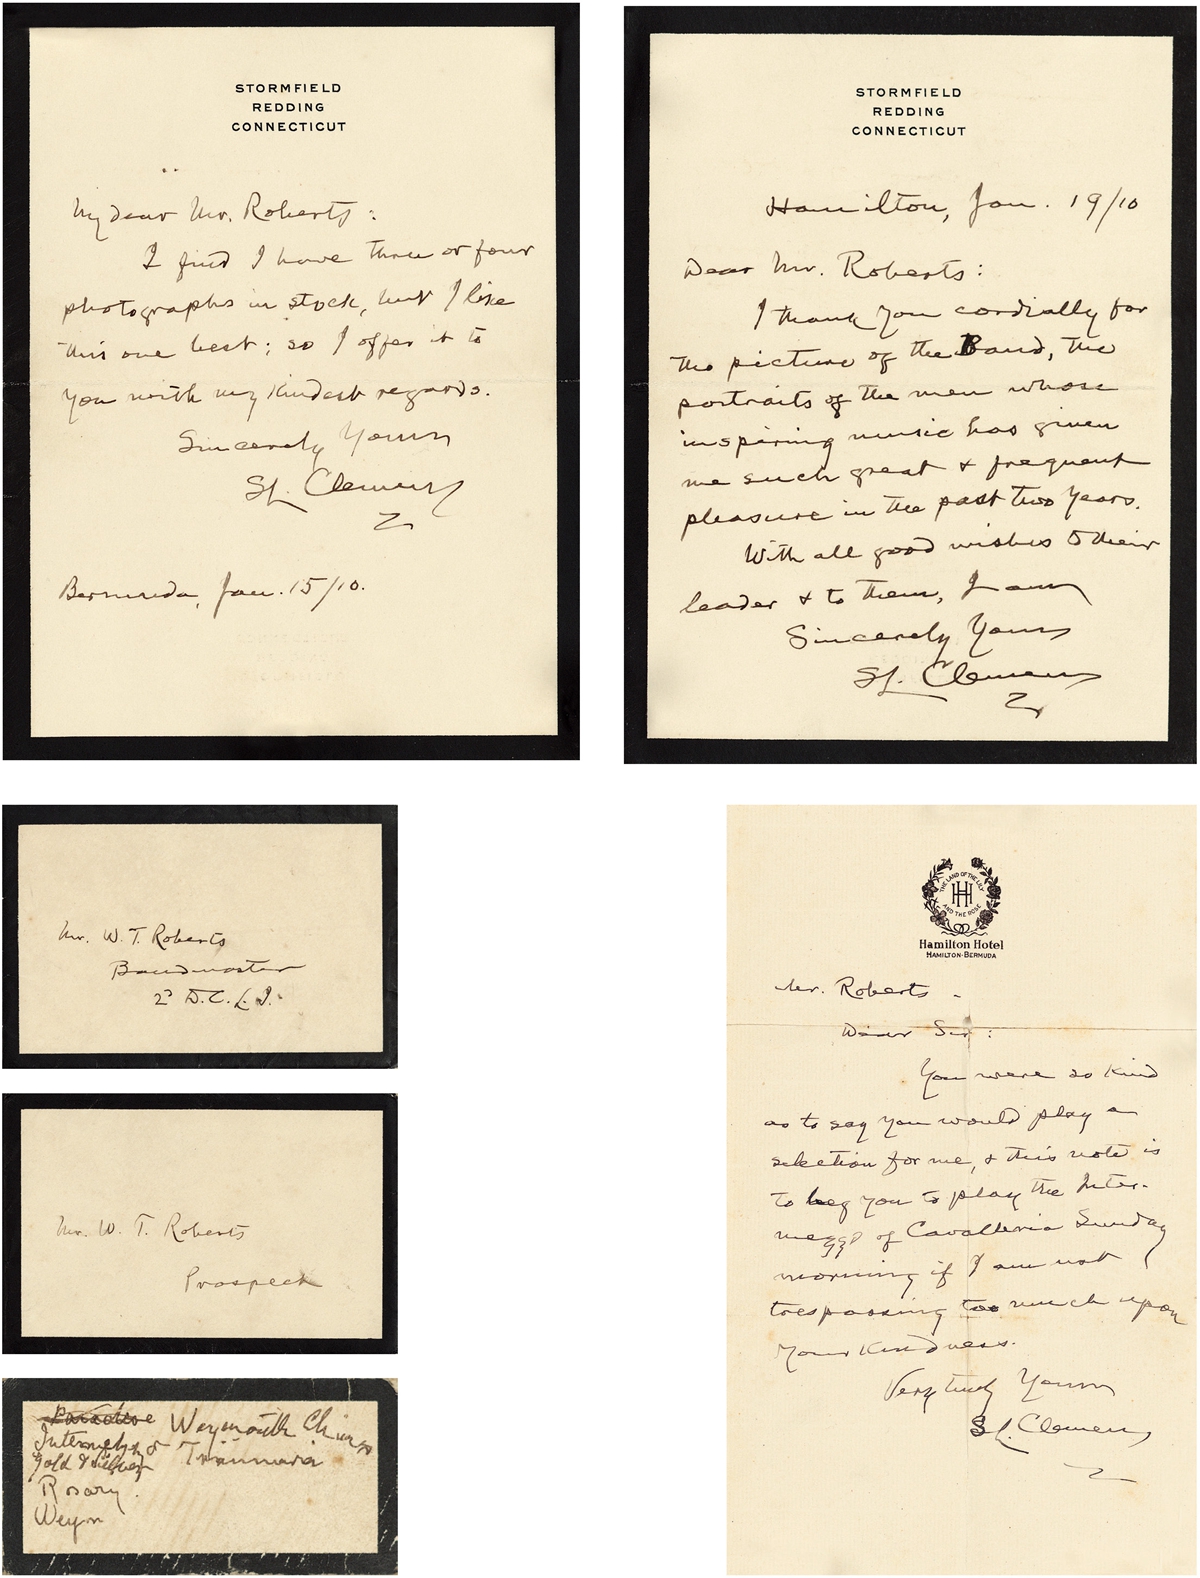 STORMFIELD
REDDING
CONNECTICUT
My dear Mr. Roberts:
I find I have three or four
photographs in stock, but I like
this one best; so I offer it to
you with my kindest regards.
Sincerely Yours
SL. Clemens
Bermuda, Jan. 15/10.
STORMFIELD
REDDING
CONNECTICUT
Hamilton, Jan. 19/10
Dear Mr. Roberts:
I thank you cordially for
the picture of the Band, the
portraits of the men whose
inspiring music has given
me such great & frequent
pleasure in the past two years.
With all good wishes to their
leader & to them, I am
Sincerely Yours
SL. Clemens
Mr. W. T. Roberts
Bandmaster
2d D. C. L. I.
Mr. W. T. Roberts
Prospect
Weymouth Chimes
Gold & Silver Träumerei
Rosary
Weym
THE LAND OF THE LILY
AND THE ROSE
HH
Hamilton Hotel
HAMILTON-BERMUDA
Mr. Roberts.
Dear Sir:
You were so kind
as to say you would play a
selection for me, & this note is
to beg you to play the Inter-
mezzo of Cavalleria Sunday
morning if I am not
trespassing too much upon
your kindness.
Very truly Yours
SL. Clemens